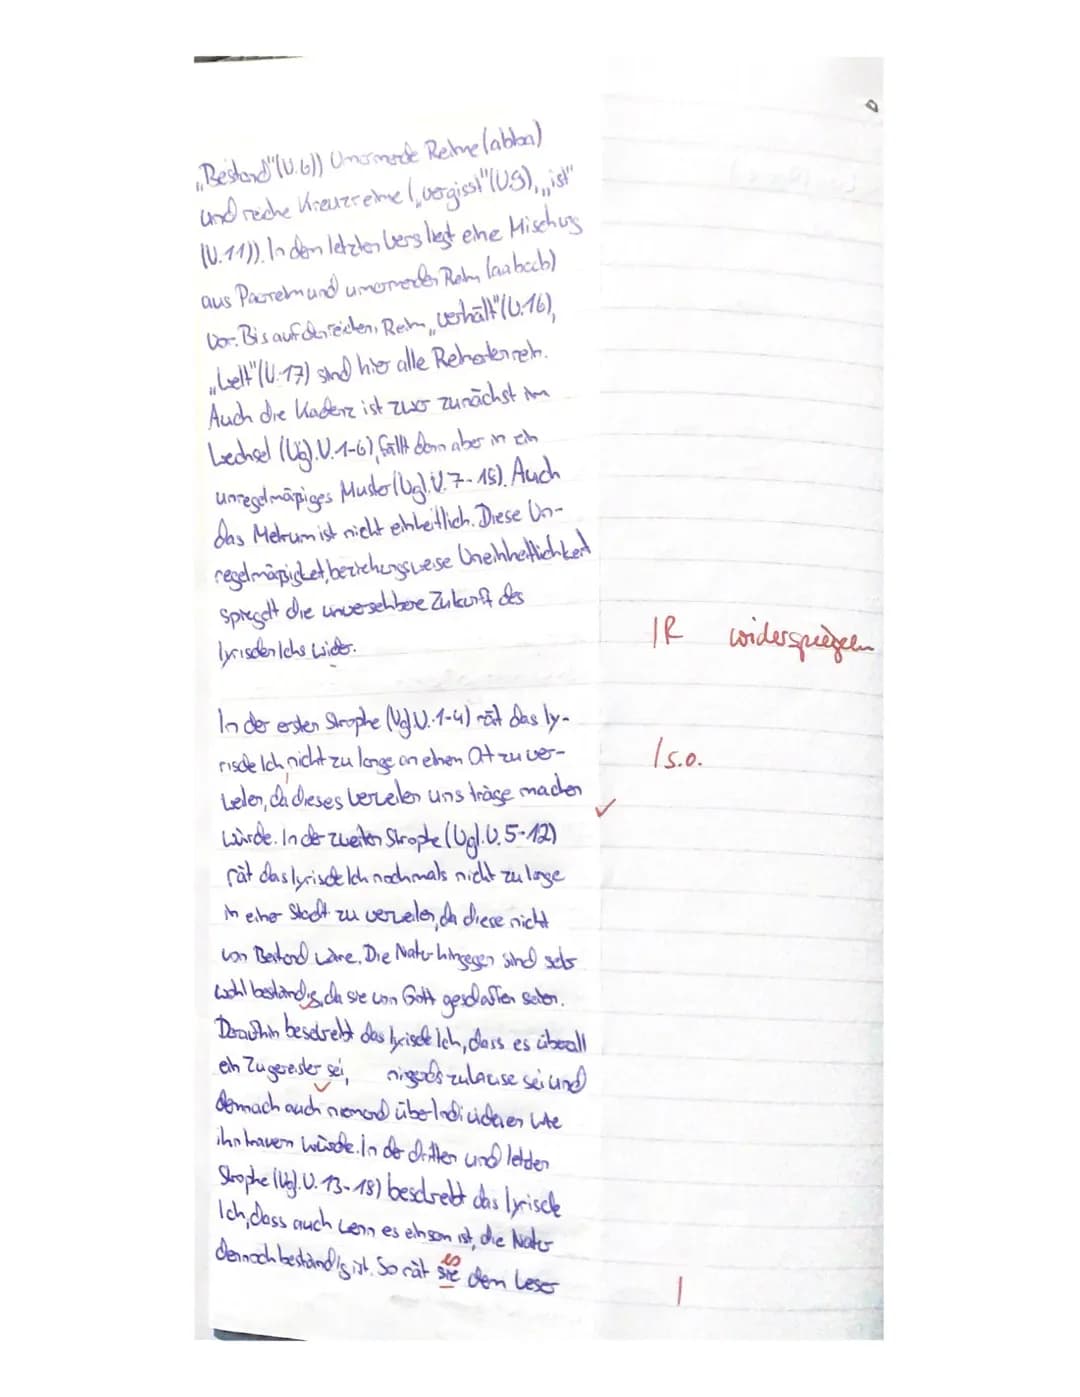 „Bestand"(V.6)) Umarmende Reime (abba)
und reiche Kreuzreime („vergisst"(V.9), „ist"
(V.11)). In dem letzten Vers liegt eine Mischung
aus Paarreim und umarmenden Reim (aabccb)
vor. Bis auf den reichen, Reim „verhält"(V.16),
„Welt"(V.17) sind hier alle Reimarten rein.
Auch die Kadenz ist zwar zunächst im
Wechsel (Vgl. V.1-6), fällt dann aber in ein
unregelmäßiges Muster (Vgl. V.7-18). Auch
das Metrum ist nicht einheitlich. Diese Un-
regelmäßigket, beziehungsweise Uneinheitlichkeit
spiegelt die unversehbare Zukunft des
lyrischen Ichs wider.
IR widerspiegeln
In der ersten Strophe (Vgl. V.1-4) rät das ly-
rische Ich, nicht zu lange an einen Ort zu ver-
/s.o.
weilen, da dieses Verweilen uns träge machen
würde. In der zweiten Strophe (Vgl. V.5-12)
rät das lyrische Ich nochmals nicht zu lange
in einer Stadt zu verweilen, da diese nicht
von Bestand wäre. Die Natur hingegen sind sehr
wohl beständig, da sie von Gott geschaffen seien.
Daraufhin beschreibt das lyrische Ich, dass es überall
ein Zugereister sei, nirgends zuhause sei und
demnach auch niemand über Individuen wie
ihn trauern würde. In der dritten und letzten
Strophe (Vgl. V.13-18) beschreibt das lyrische
Ich, dass auch wenn es einsam ist, die Natur
es
dennoch beständig ist. So rät sie dem Leser